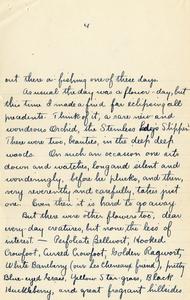 4
out there a-fishing one of these days.
As usual the day was a flower-day, but
this time I made a find far eclipsing all
precedents. Think of it, a rare new and
wondrous Orchid, the Stemless Lady's Slipper.
There were two, beauties, in the deep deep
woods. On such an occasion one sits
down and watches, long and silent and
wonderingly, before he plucks, and then,
very reverently and carefully, takes just
one. Even then it is hard to go away.
But there were other flowers too, dear
every-day creatures, but none the less of
interest — Perfoliate Bellwort, Hooked
Crowfoot, Cursed Crowfoot, Golden Ragwort,
White Baneberry (our Les Cheneaux friend), pretty
Blue-eyed Grass, Yellow Star-grass, Black
Huckleberry, and great fragrant hillsides